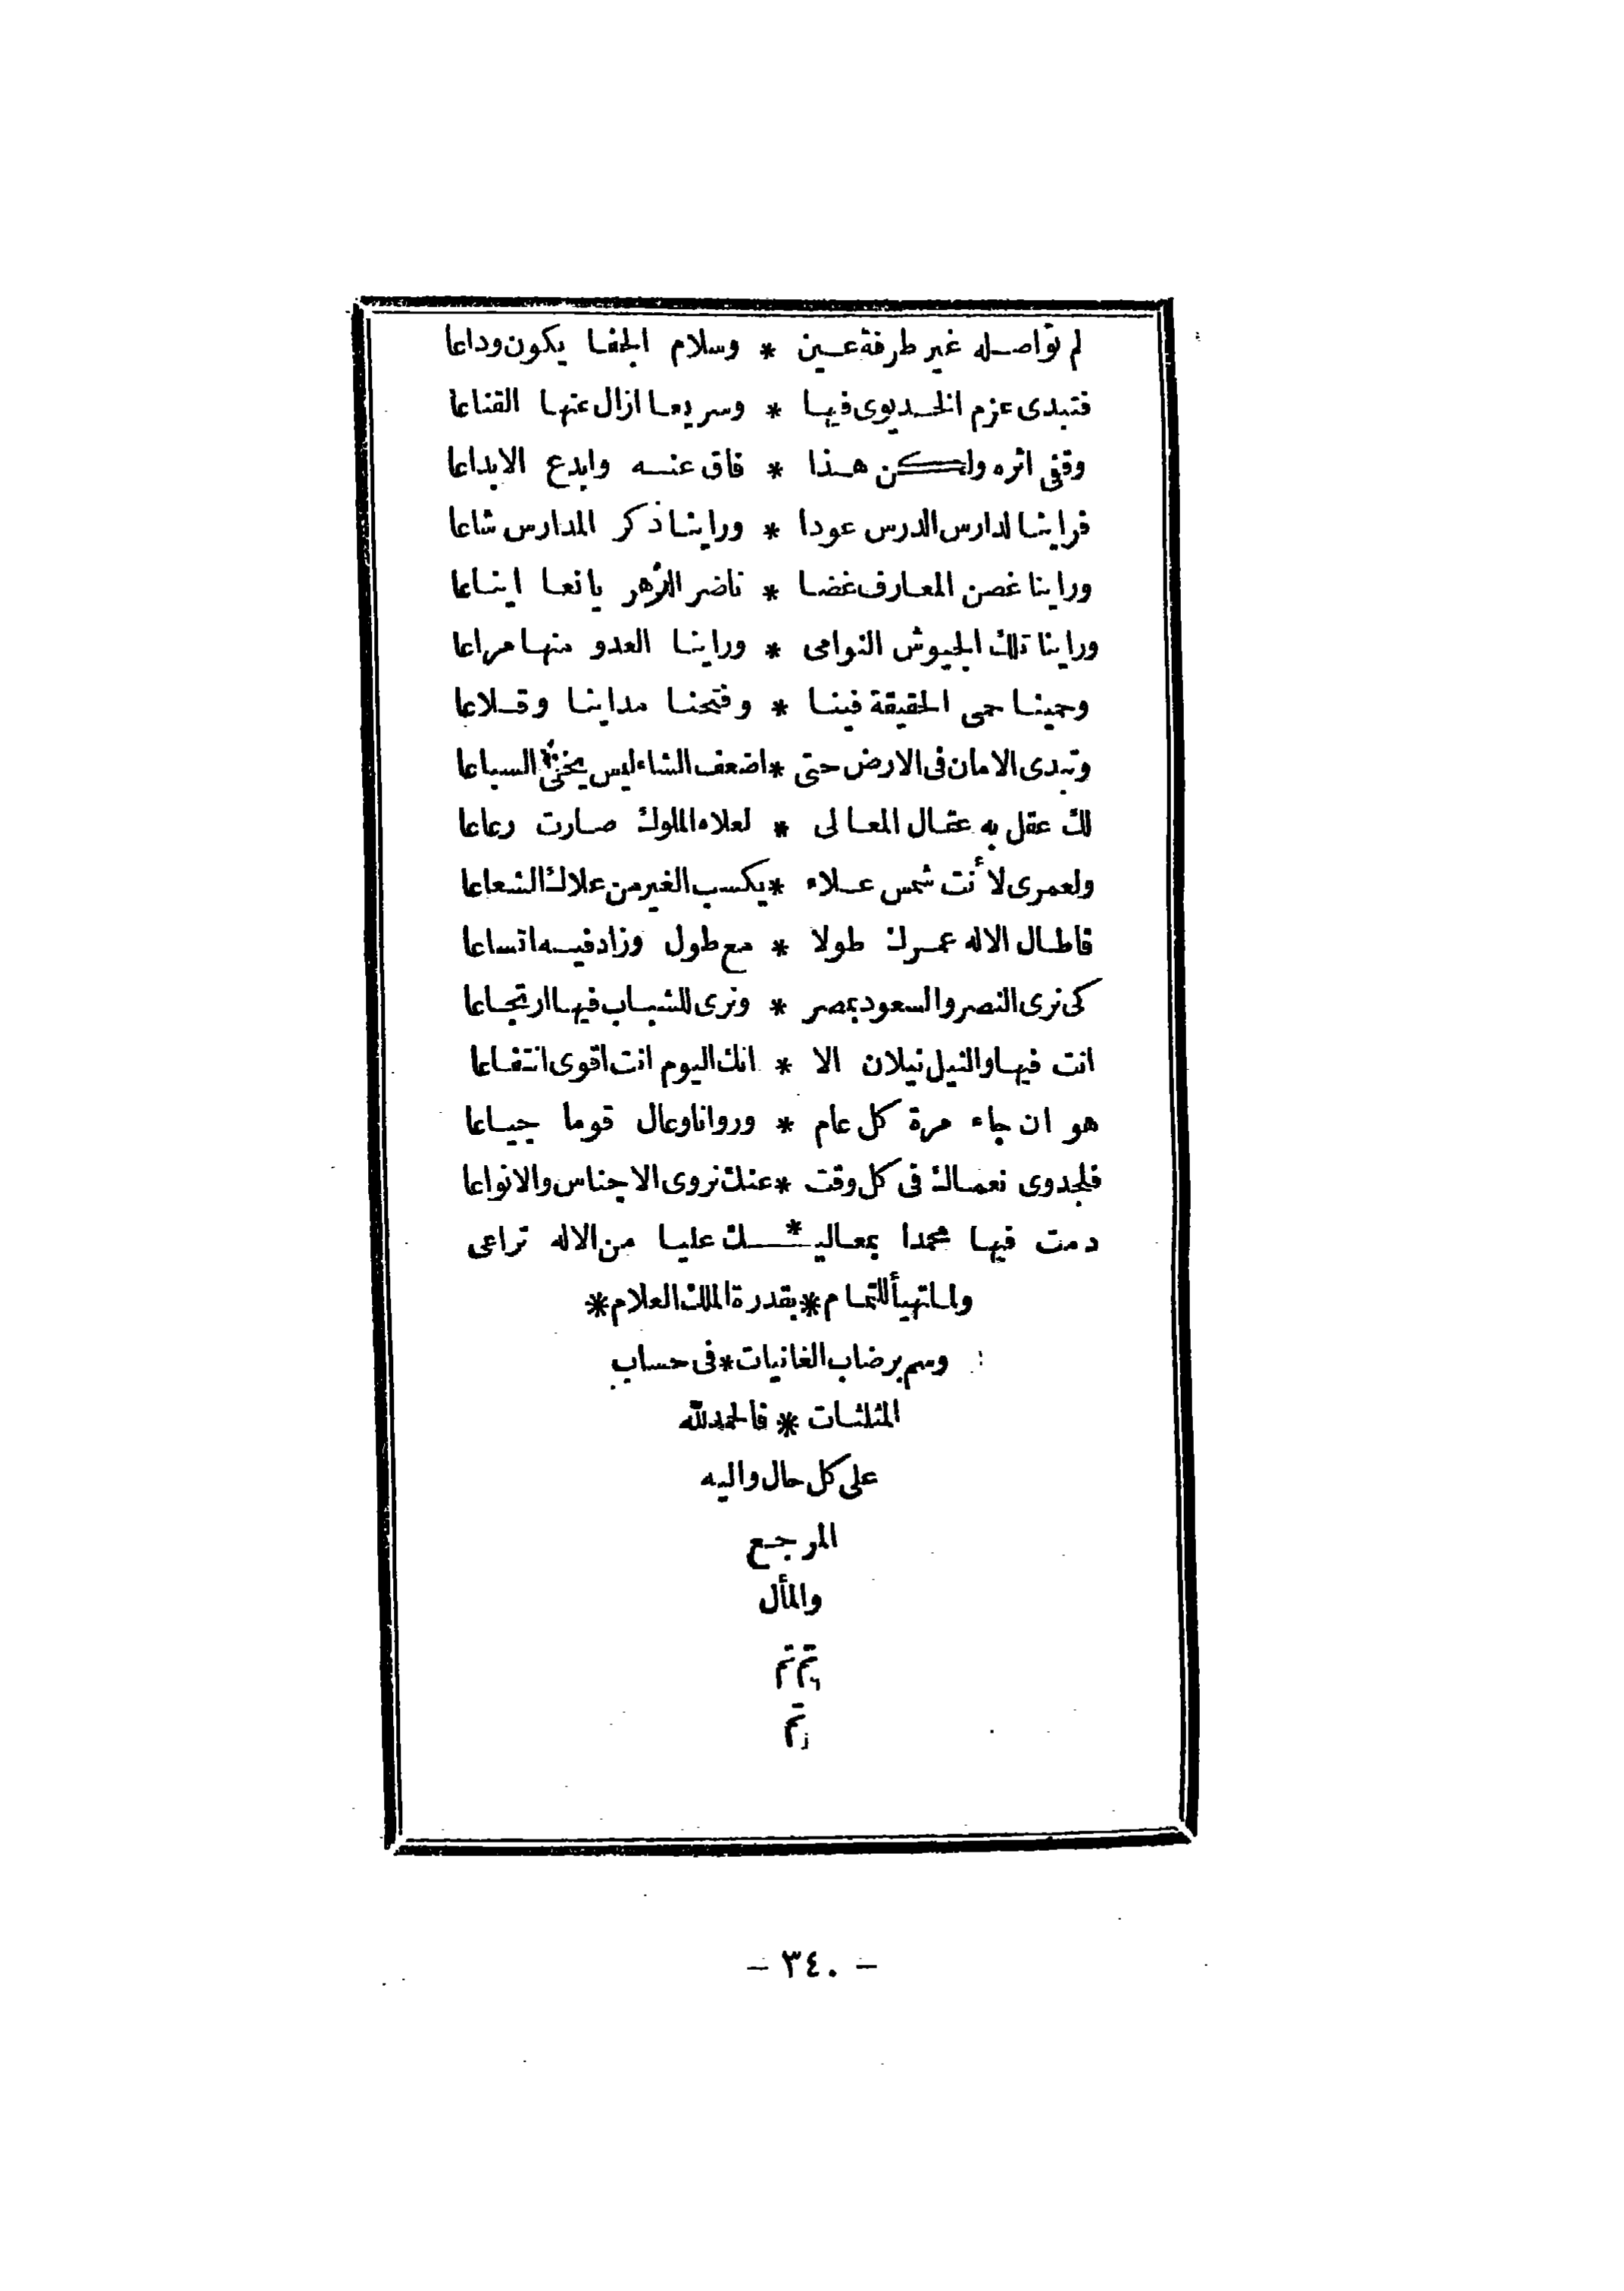 لم تواصله غير طرفة عين * وسلام الجفا يكون وداعا
فتبدى عزم الخديوى فيها * وسريعا ازال عنها القناعا
وقفى اثره ولكن هذا * فاق عنه وابدع الابداعا
فراينا لدارس الدرس عودا * وراينا ذكر المدارس شاعا
وراينا غصن المعارف غضا * ناضر الزهر يانعا ايناعا
وراينا تلك الجيوش النوامى * وراينا العدو منها مراعا
وحمينا حمى الحقيقة فينا * وفتحنا مداينا وقلاعا
وتبدى الامان فى الارض حتى * اضعف الشاء ليس يخشى السباعا
لك عقل به عقال المعالى * لعلاه الملوك صارت رعاعا
ولعمرى لأنت شمس علاء * يكسب الغير من علاك الشعاعا
فاطال الاله عمرك طولا * مع طول وزاد فيه اتساعا
كى نرى النصر والسعود بمصر * ونرى للشباب فيها ارتجاعا
انت فيها والنيل نيلان الا * انك اليوم انت اقوى انتفاعا
هو ان جاء مرة كل عام * وروانا وعال قوما جياعا
فلجدوى نعماك فى كل وقت * عنك نروى الاجناس والانواعا
دمت فيها محمدا بمعاليـ * ـك عليا من الاله تراعى
ولما تهيأ للتمام * بقدرة الملك العلام *
وسم برضاب الغانيات * فى حساب
المثلثات * فالحمد لله
على كل حال واليه
المرجع
والمأل
تم تم
تم
– ٣٤٠ –